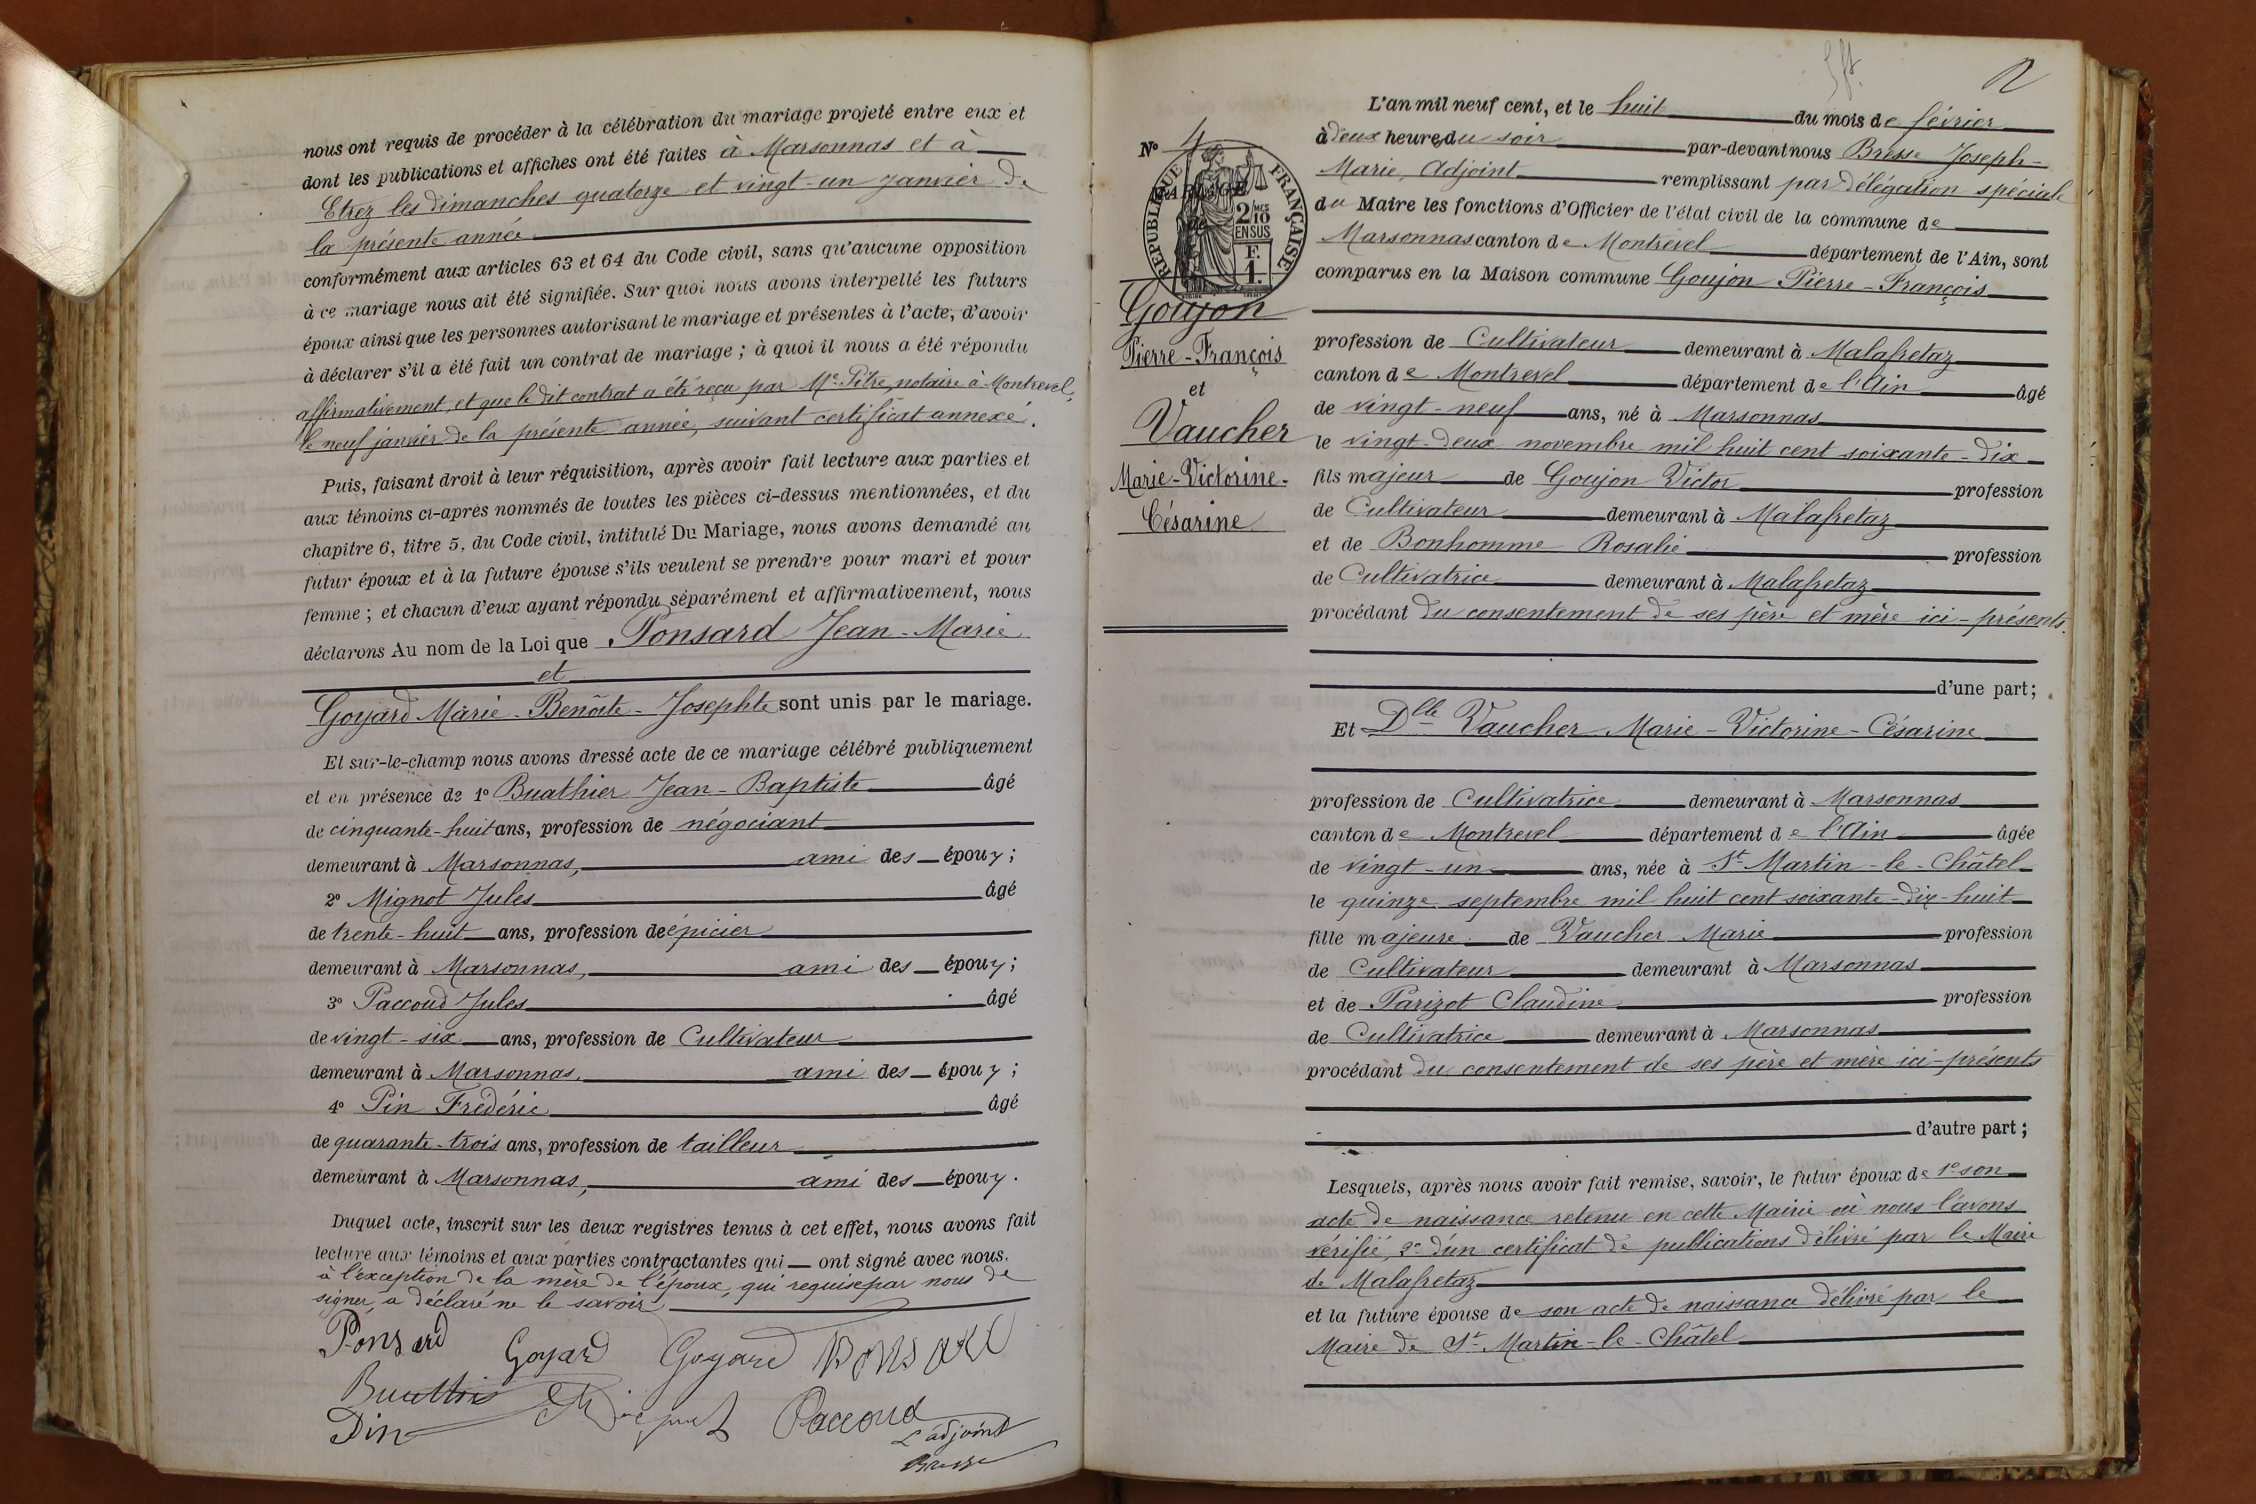 nous ont requis de procéder à la célébration du mariage projeté entre eux et
dont les publications et affiches ont été faites à Marsonnas et à
Etrez les dimanches quatorze et vingt-un janvier de
la présente année
conformément aux articles 63 et 64 du Code civil, sans qu'aucune opposition
à ce mariage nous ait été signifiée. Sur quoi nous avons interpellé les futurs
époux ainsi que les personnes autorisant le mariage et présentes à l'acte, d'avoir
à déclarer s'il a été fait un contrat de mariage ; à quoi il nous a été répondu
affirmativement, et que le dit contrat a été reçu par Me Pitre, notaire à Montrevel,
le neuf janvier de la présente année, suivant certificat annexé.
Puis, faisant droit à leur réquisition, après avoir fait lecture aux parties et
aux témoins ci-après nommés de toutes les pièces ci-dessus mentionnées, et du
chapitre 6, titre 5, du Code civil, intitulé Du Mariage, nous avons demandé au
futur époux et à la future épouse s'ils veulent se prendre pour mari et pour
femme ; et chacun d'eux ayant répondu séparément et affirmativement, nous
déclarons Au nom de la Loi que Ponsard Jean-Marie
et
Goyard Marie-Benoîte-Josephte sont unis par le mariage.
Et sur-le-champ nous avons dressé acte de ce mariage célébré publiquement
et en présence de 1° Buathier Jean-Baptiste âgé
de cinquante-huit ans, profession de négociant
demeurant à Marsonnas, ami des époux ;
2° Mignot Jules âgé
de trente-huit ans, profession de épicier
demeurant à Marsonnas, ami des époux ;
3° Paccoud Jules âgé
de vingt-six ans, profession de Cultivateur
demeurant à Marsonnas, ami des époux ;
4° Pin Frédéric âgé
de quarante-trois ans, profession de tailleur
demeurant à Marsonnas, ami des époux.
Duquel acte, inscrit sur les deux registres tenus à cet effet, nous avons fait
lecture aux témoins et aux parties contractantes qui ont signé avec nous.
à l'exception de la mère de l'époux, qui requise par nous de
signer, a déclaré ne le savoir
Ponsard Goyard Goyard Ponsard
Buathier Mignot Paccoud
Pin L'adjoint
Bresse
2
N° 4
MARIAGE
de
RÉPUBLIQUE FRANÇAISE
2/10 MES
EN SUS
F.
1.
Goujon
Pierre-François
et
Vaucher
Marie-Victorine-
Césarine
L'an mil neuf cent, et le huit du mois de février
à deux heures du soir par-devant nous Bresse Joseph-
Marie, Adjoint remplissant par délégation spéciale
du Maire les fonctions d'Officier de l'état civil de la commune de
Marsonnas canton de Montrevel département de l'Ain, sont
comparus en la Maison commune Goujon Pierre-François
profession de Cultivateur demeurant à Malafretaz
canton de Montrevel département de l'Ain âgé
de vingt-neuf ans, né à Marsonnas
le vingt-deux novembre mil huit cent soixante-dix
fils majeur de Goujon Victor profession
de Cultivateur demeurant à Malafretaz
et de Bonhomme Rosalie profession
de Cultivatrice demeurant à Malafretaz
procédant du consentement de ses père et mère ici-présents.
d'une part ;
Et Dlle Vaucher Marie-Victorine-Césarine
profession de Cultivatrice demeurant à Marsonnas
canton de Montrevel département de l'Ain âgée
de vingt-un ans, née à St Martin-le-Châtel
le quinze septembre mil huit cent soixante-dix-huit
fille majeure de Vaucher Marie profession
de Cultivateur demeurant à Marsonnas
et de Parizot Claudine profession
de Cultivatrice demeurant à Marsonnas
procédant du consentement de ses père et mère ici-présents
d'autre part ;
Lesquels, après nous avoir fait remise, savoir, le futur époux de 1° son
acte de naissance retenu en cette Mairie où nous l'avons
vérifié, 2° d'un certificat de publications délivré par le Maire
de Malafretaz
et la future épouse de son acte de naissance délivré par le
Maire de St Martin-le-Châtel